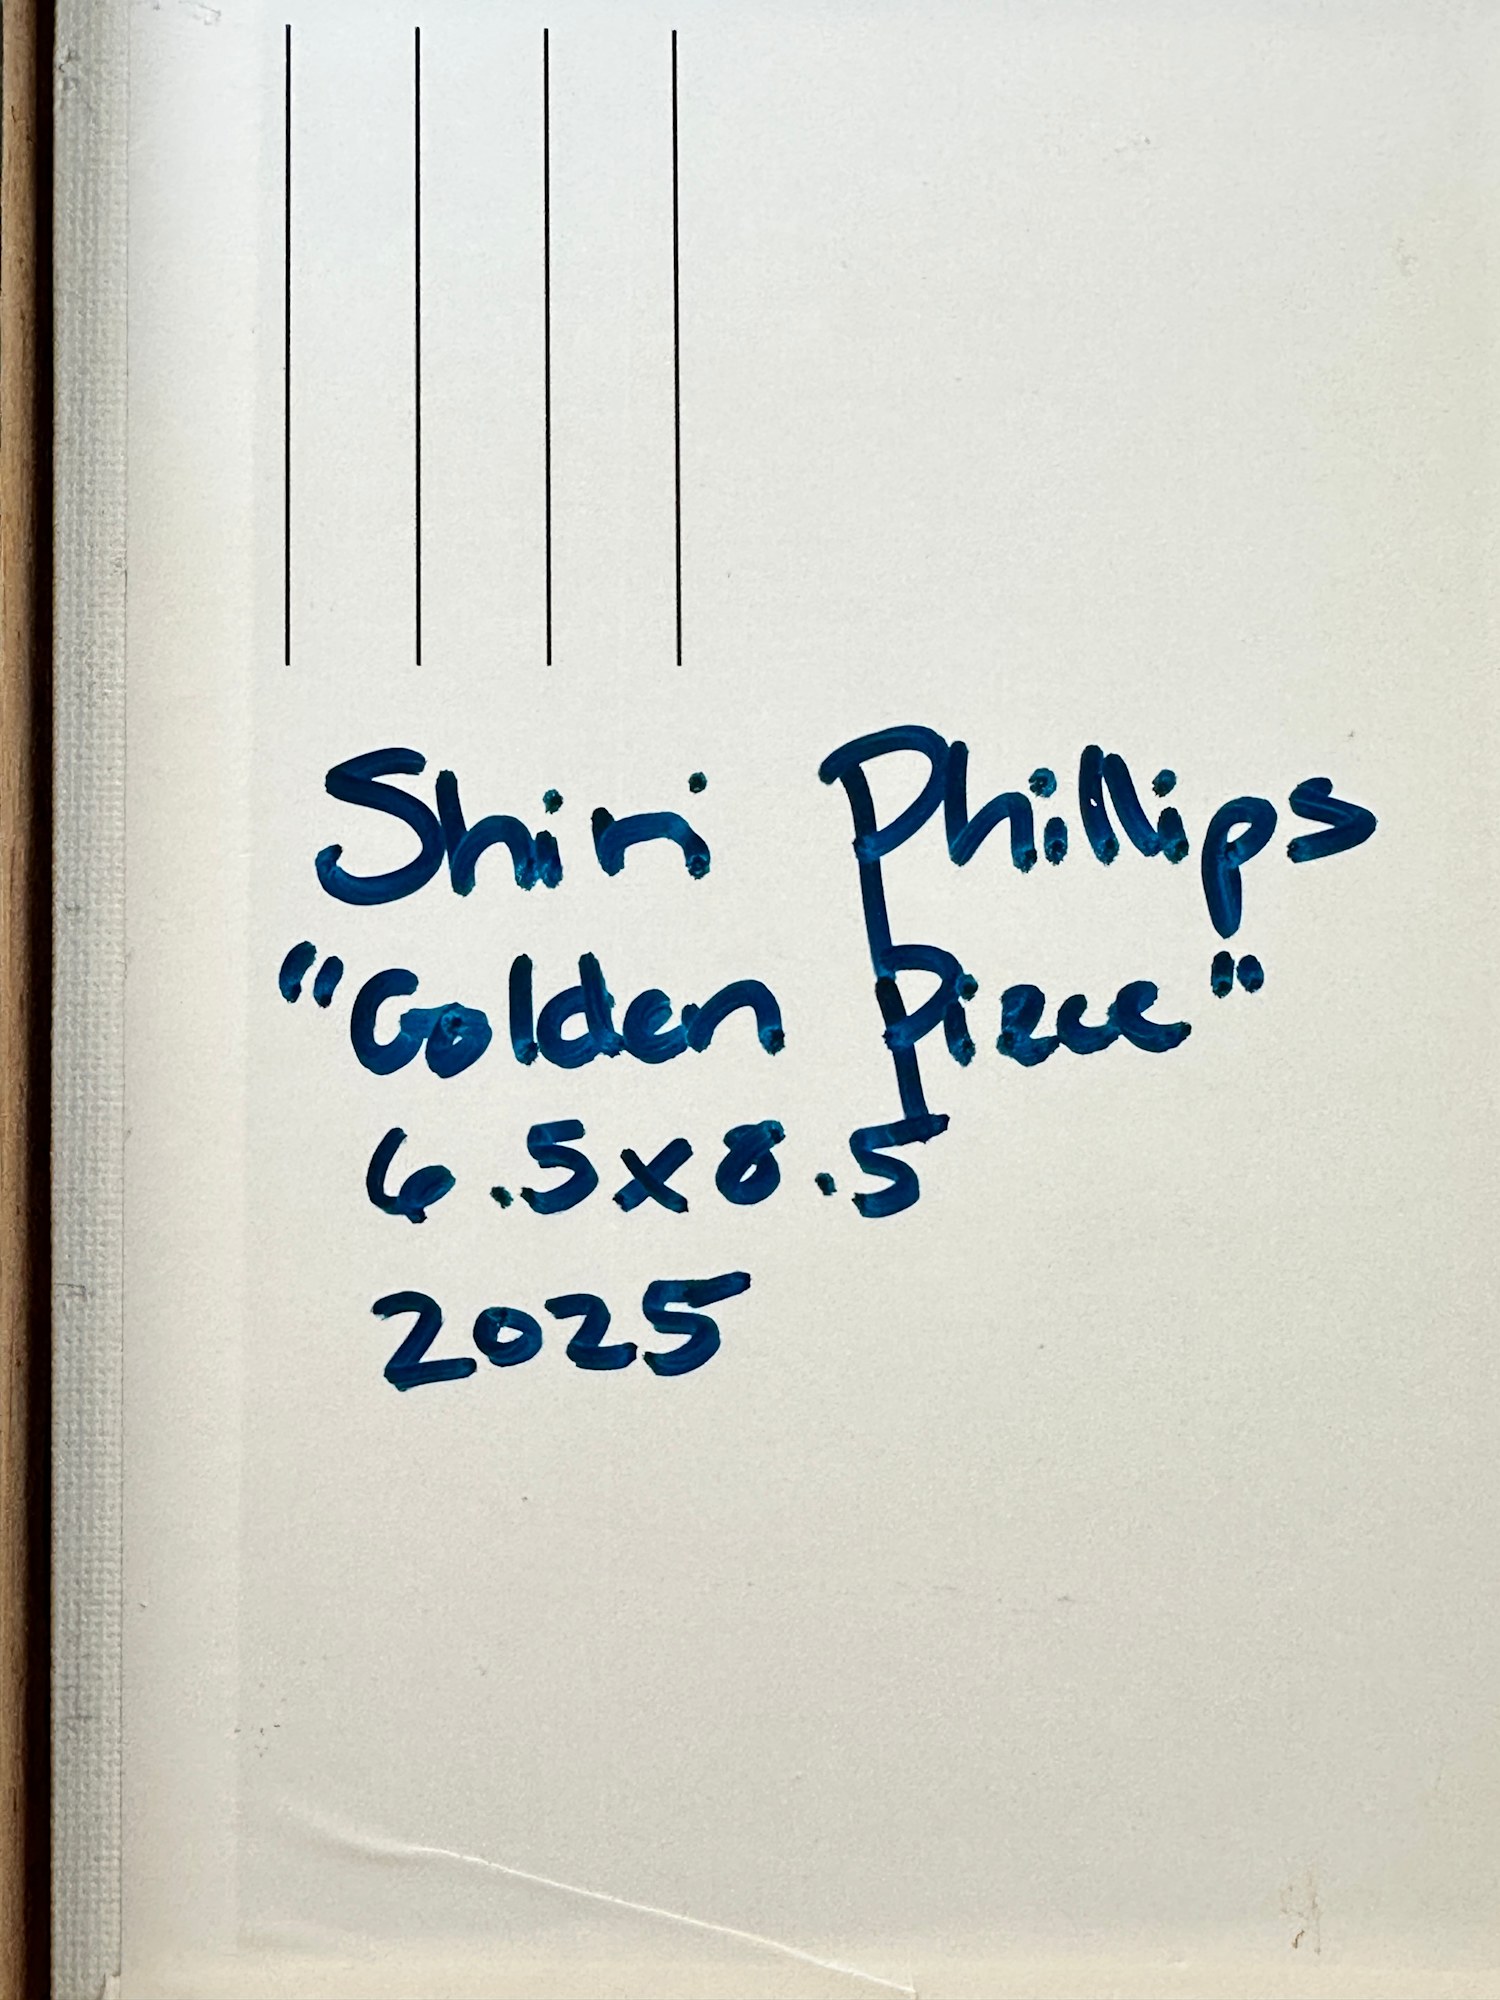 Shiri Phillips
"Golden Piece"
6.5x8.5
2025